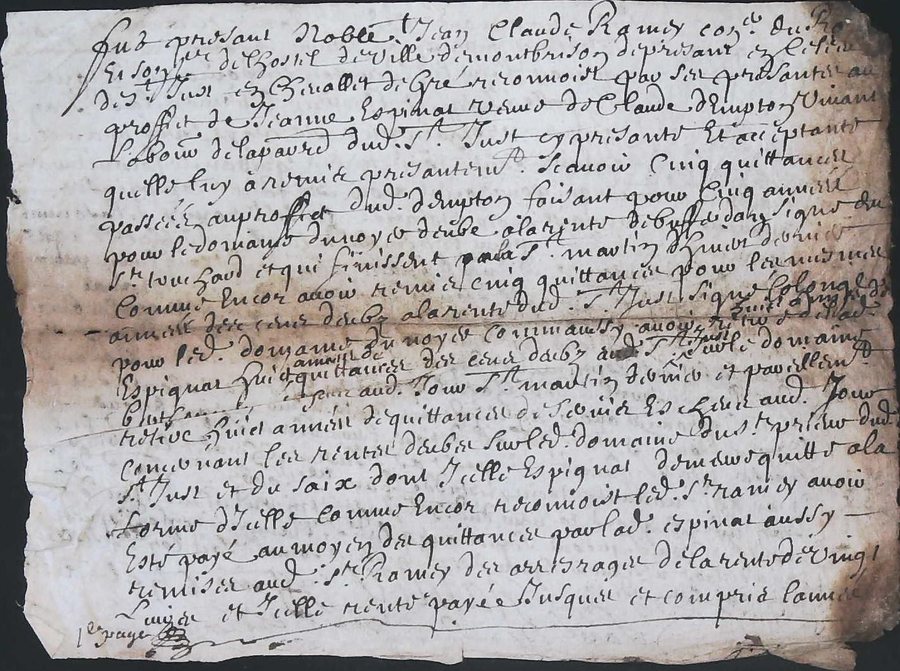 fut presant Noble Jean Claude Ramey con.er du Roy
En son hostel de Ville de montbrison de presant en
de St Just en Chevallet de Gré reconnoist par ses presantes au
proffict de Jeanne Espinat veuve de Claude dEmpton Vivant
Labour de la parr dud. St Just cy presante Et acceptante
quelle luy a remis presantem.t scavoir Cinq quittances
passées au proffict dud. dEmpton faisant pour Cinq années
pour le domaine du noyer deube a la rente de buffardan signé du
Sr touchard et qui finissent a la St martin dhiver dernier
Comme Encor avoir remis cinq quittances pour les mesmes
années des cens deubz a la rente dud. St Just signé Colonge
pour led. domaine du noyer comm aussy avoir retiré de lad.
Espignat huict quittances des cens deubz aud St Just sur le domaine
aud. Jour St martin dernier et pareillem.t
retiré huict années de quittances de servis Escheus aud. Jour
concernant les rentes deubes sur led. domaine du Sr prieur dud.
St Just et du saix dont Icelle Espignat demeure quitte a la
forme dIcelle comme Encor reconnoist led. Sr ramey avoir
Esté payé au moyen des quittances par lad. espinat aussy
remises aud. Sr Ramey des arrerages de la rente de Vingt
Livres et Icelle rente payée Jusques et compris lannée
1re page